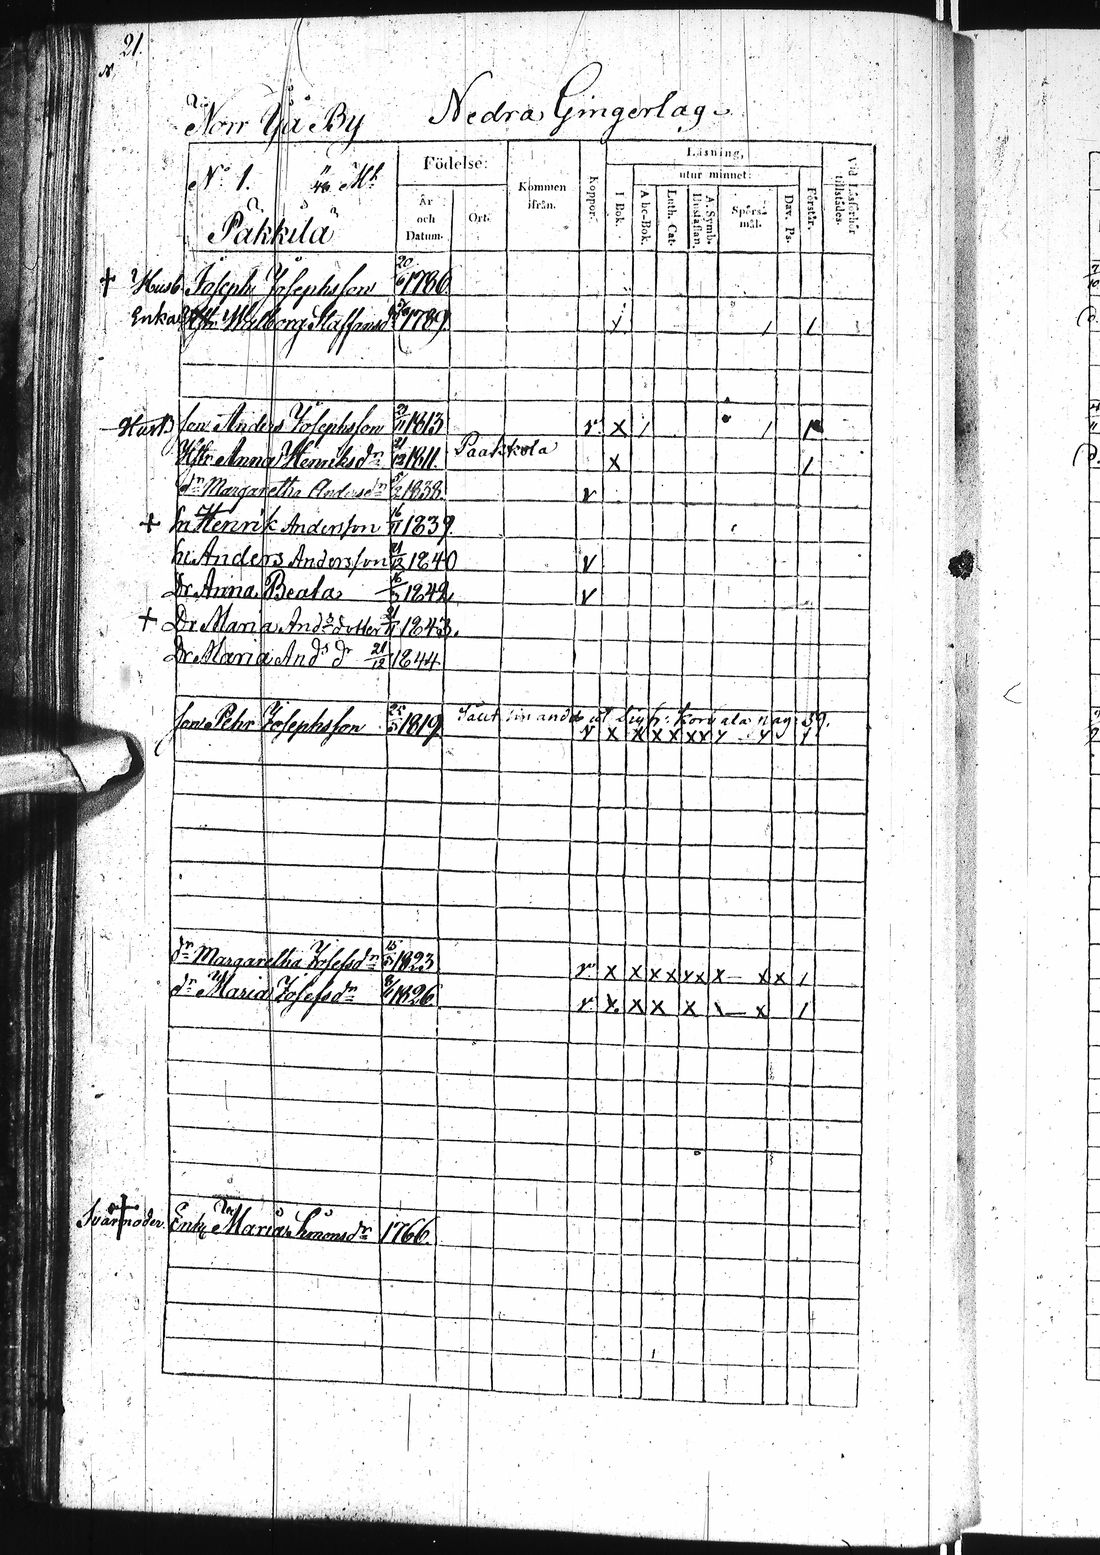 21
Norr Yä By Nedra Gingerlag
No 1. Mtl
Päkkilä
Födelse:
År och Datum.
Ort.
Kommen ifrån.
Koppor.
Läsning,
utur minnet:
I Bok.
Abc-Bok.
Luth. Cat.
A. Symb. Hustaflan.
Spörsmål.
Dav. Ps.
Förstår.
Vid Läseförhör tillstädes.
+ Husb. Joseph Josephsson 20/6 1786
Enka Walborg Staffansdr 1789
Husb son Anders Josephsson 21/11 1813 r. X / / /
Hstr Anna Henriksdn 21/12 1811. Paakkola X /
dn Margaretha Andersdn 1838. v
+ Sn Henrik Andersson 16/11 1839.
Sn Anders Andersson 21/12 1840 v
Dr Anna Beata 1842. v
+ Dr Maria Andsdotter 21/11 1843.
Dr Maria Ands dr 21/12 1844
son Pehr Josephsson 1819 pag. 39.
dn Margaretha Josefsdn 15/5 1823 r. X X X X X X X — X X /
dn Maria Josefsdn 1826 r. X X X X \ — X /
Svärmoder + Enk. Maria Simonsdr 1766.